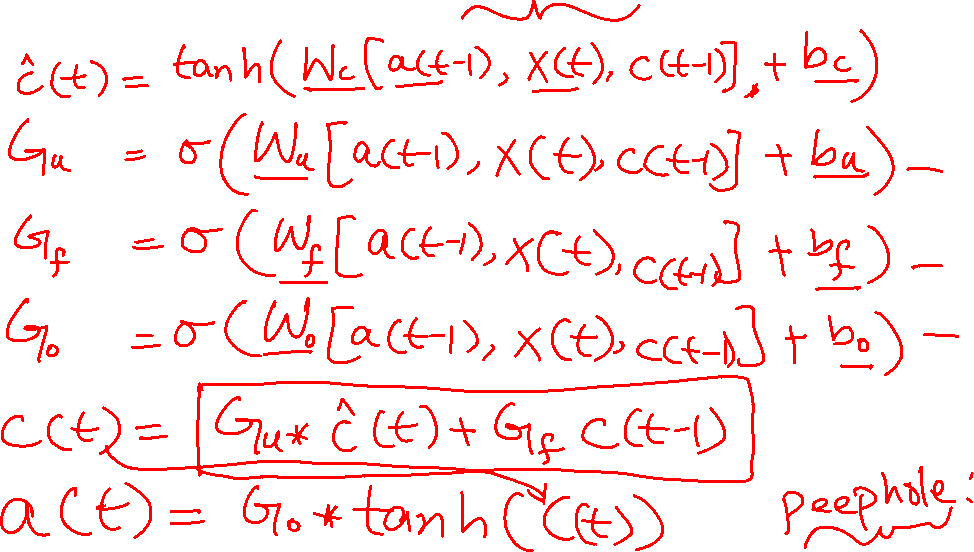 ĉ(t) = tanh(Wc[a(t-1), x(t), c(t-1)], + bc)
Gu = σ(Wu[a(t-1), x(t), c(t-1)] + bu) –
Gf = σ(Wf[a(t-1), x(t), c(t-1)] + bf) –
Go = σ(Wo[a(t-1), x(t), c(t-1)] + bo) –
c(t) = Gu* ĉ(t) + Gf c(t-1)
a(t) = Go * tanh(c(t))
peephole: